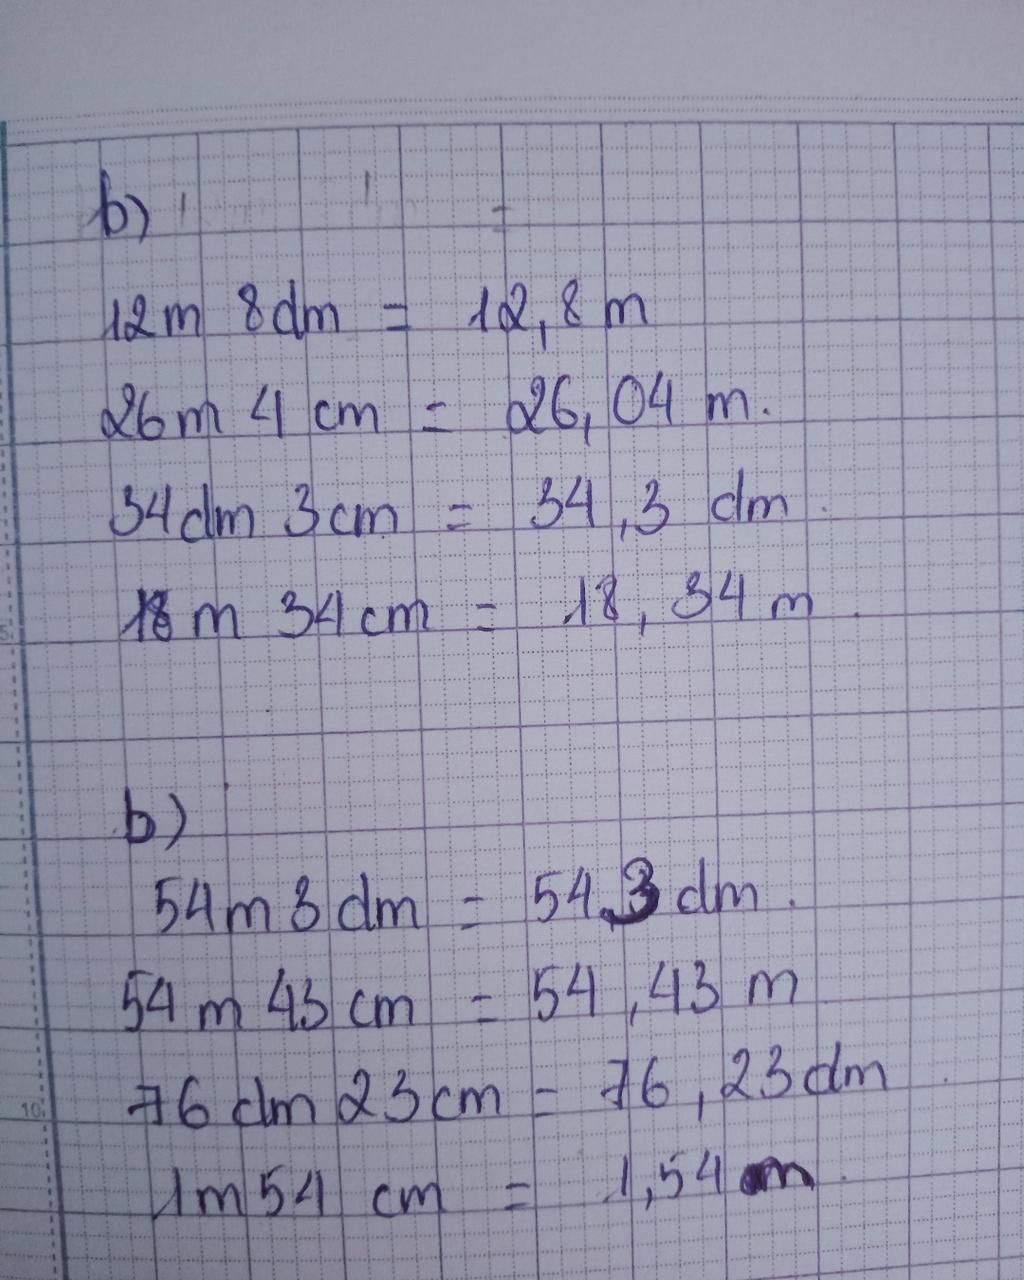 b)
12m 8dm = 12,8 m
26m 4 cm = 26,04 m.
34dm 3cm = 34,3 dm.
18 m 34 cm = 18,34 m.
b)
54m 3 dm = 54,3 dm.
54 m 43 cm = 54,43 m
76 dm 23 cm = 76,23 dm.
1m 54 cm = 1,54 m.
10